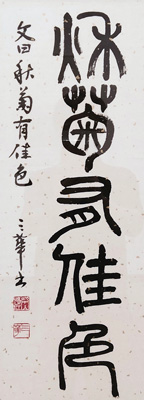 秋菊有佳色
文曰秋菊有佳色
三華書